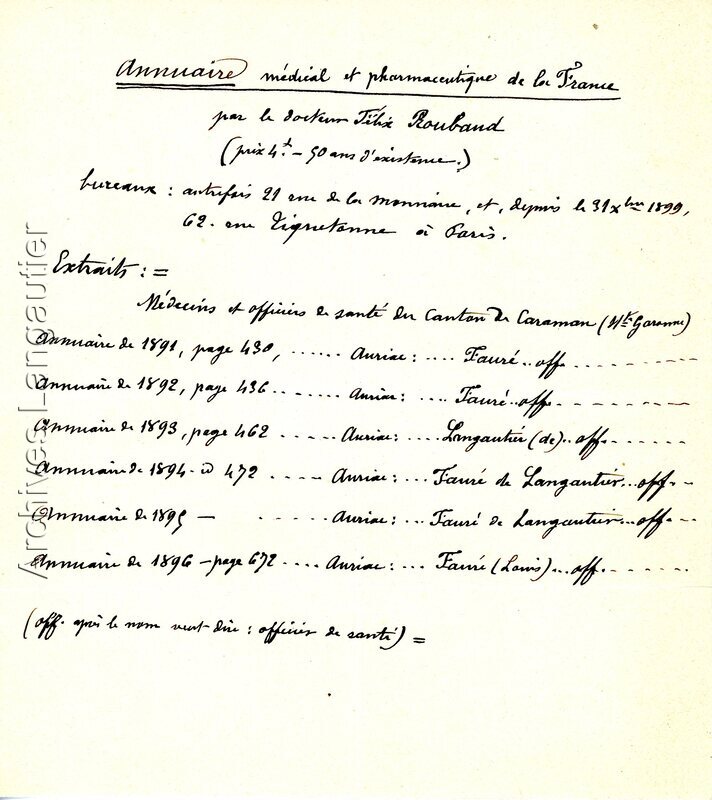 Annuaire médical et pharmaceutique de la France
par le docteur Félix Roubaud
(prix 4f. - 50 ans d'existence.)
bureaux : autrefois 21 rue de la monnaie, et, depuis le 31 xbre 1899,
62. rue Tiquetonne à Paris.
Extraits : =
Médecins et officiers de santé du Canton de Caraman (Hte Garonne)
Annuaire de 1891, page 430, ...... Auriac : .... Fauré .. off. - - - - - - -
Annuaire de 1892, page 436 - - - - - . Auriac : .... Fauré .. off. - - - - - - - -
Annuaire de 1893, page 462 - - - - - Auriac : .... Langautier (de) .. off. - - - - -
Annuaire de 1894 - id 472 - - - - - Auriac : ... Fauré de Langautier ... off. - -
Annuaire de 1895 — - - - - - - Auriac : ... Fauré de Langautier ... off. - -
Annuaire de 1896 - page 672 .... Auriac : ... Fauré (Louis) ... off. - - - - - -
(off. après le nom veut dire : officier de santé) =
Archives Langautier